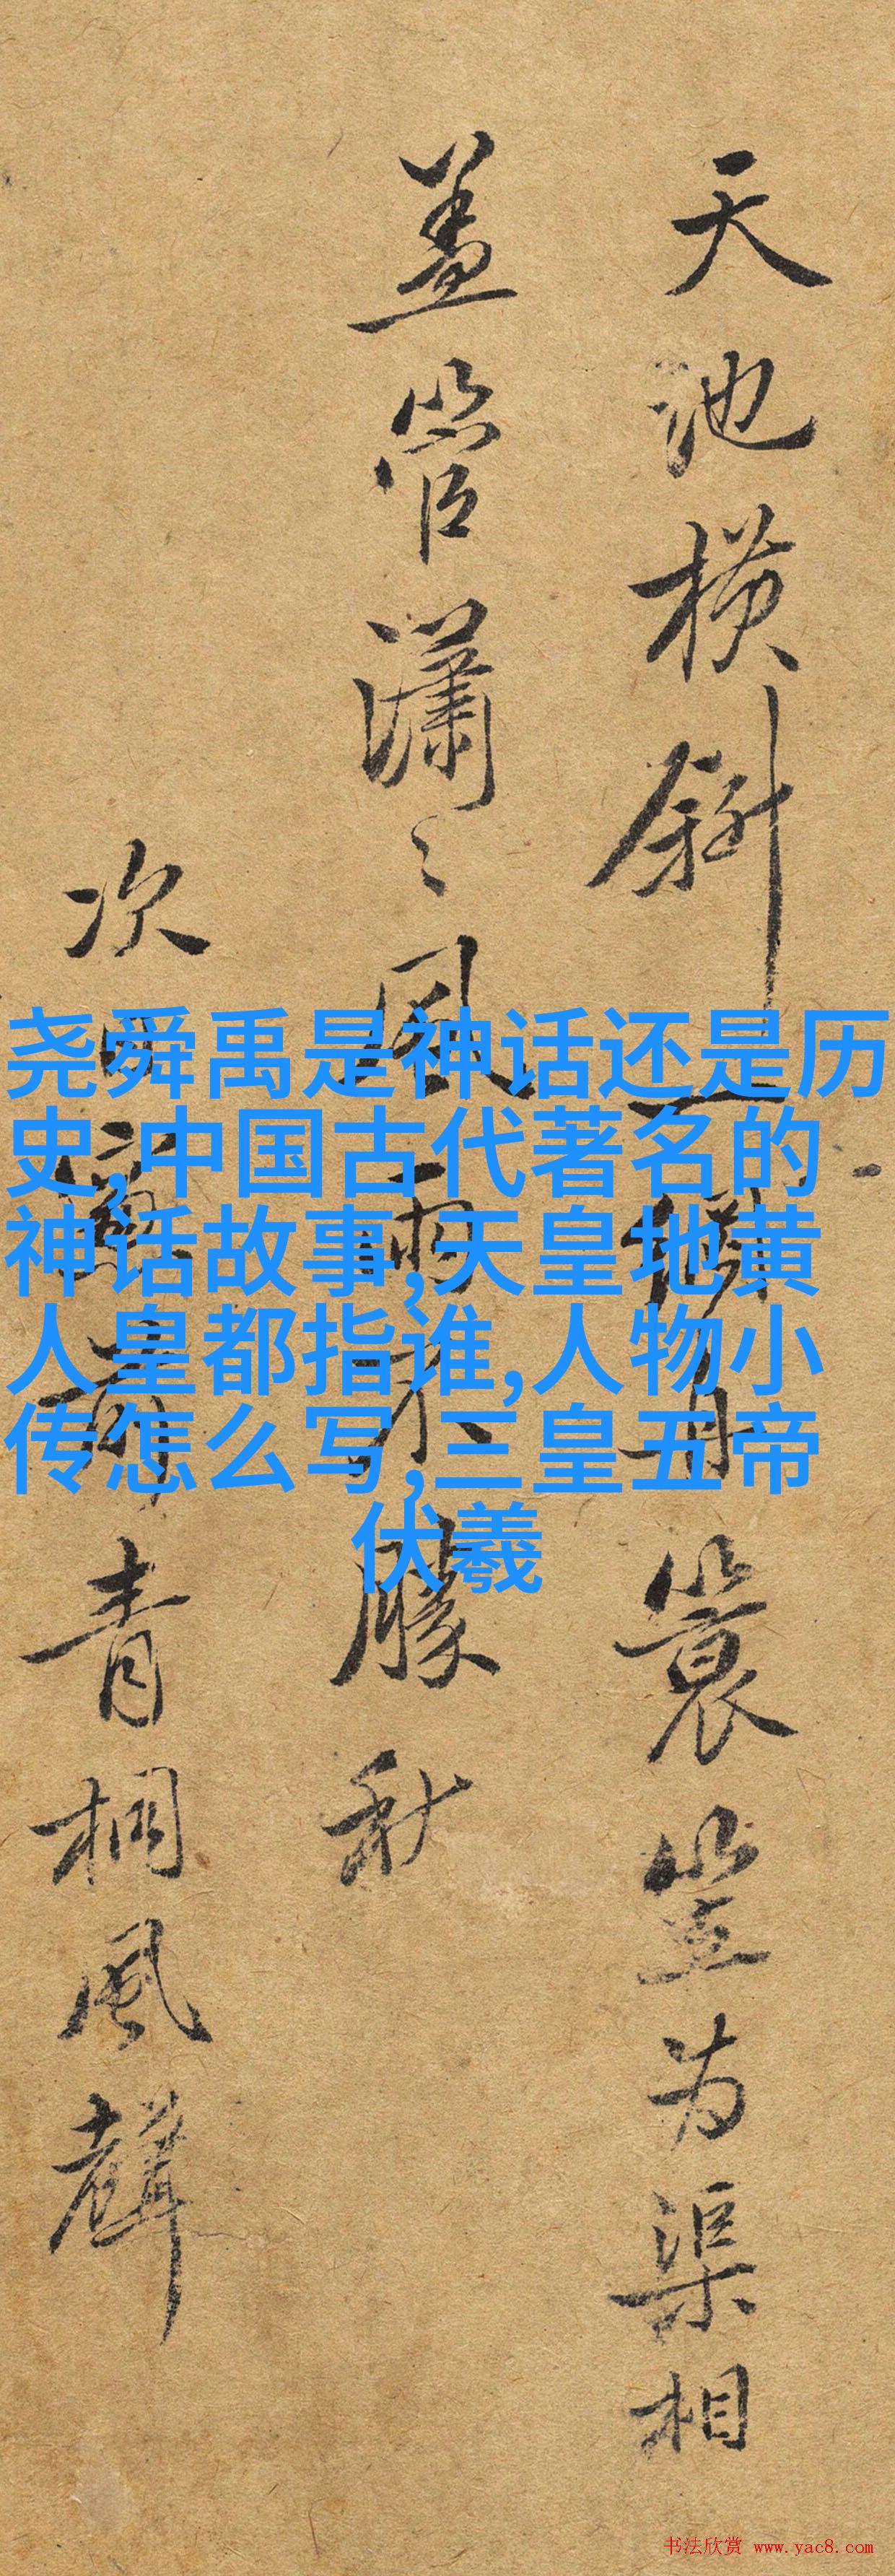 天池横斜一蓑笠为渠相
盖管瀟〻風雨朦秋
次韻青桐風聲
尧舜禹是神话还是历
史,中国古代著名的
神话故事,天皇地黄
人皇都指谁,人物小
传怎么写,三皇五帝
伏羲
书法欣赏 www.yac8.com